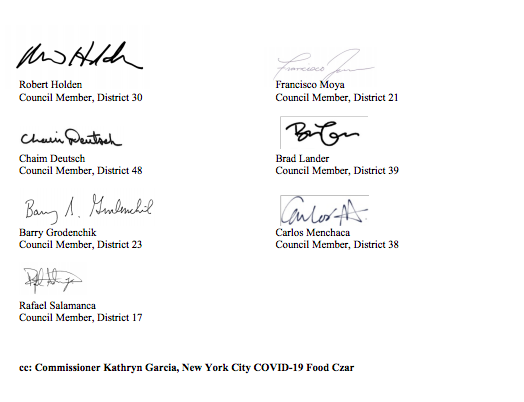 Robert Holden
Council Member, District 30
Francisco Moya
Council Member, District 21
Chaim Deutsch
Chaim Deutsch
Council Member, District 48
Brad Lander
Council Member, District 39
Barry Grodenchik
Council Member, District 23
Carlos Menchaca
Council Member, District 38
Rafael Salamanca
Council Member, District 17
cc: Commissioner Kathryn Garcia, New York City COVID-19 Food Czar